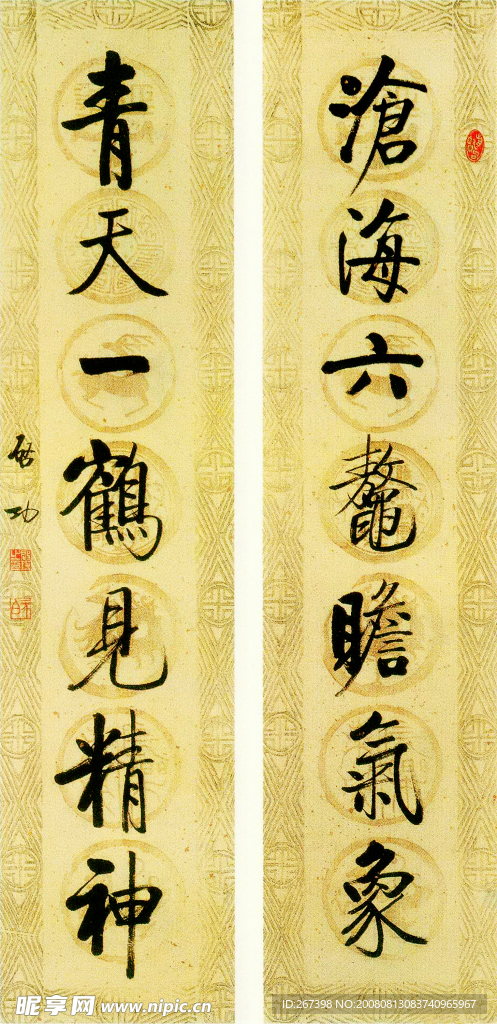 滄海六鼇瞻氣象
青天一鶴見精神
启功
昵享网 www.nipic.cn
ID:267398 NO:20080813083740965967